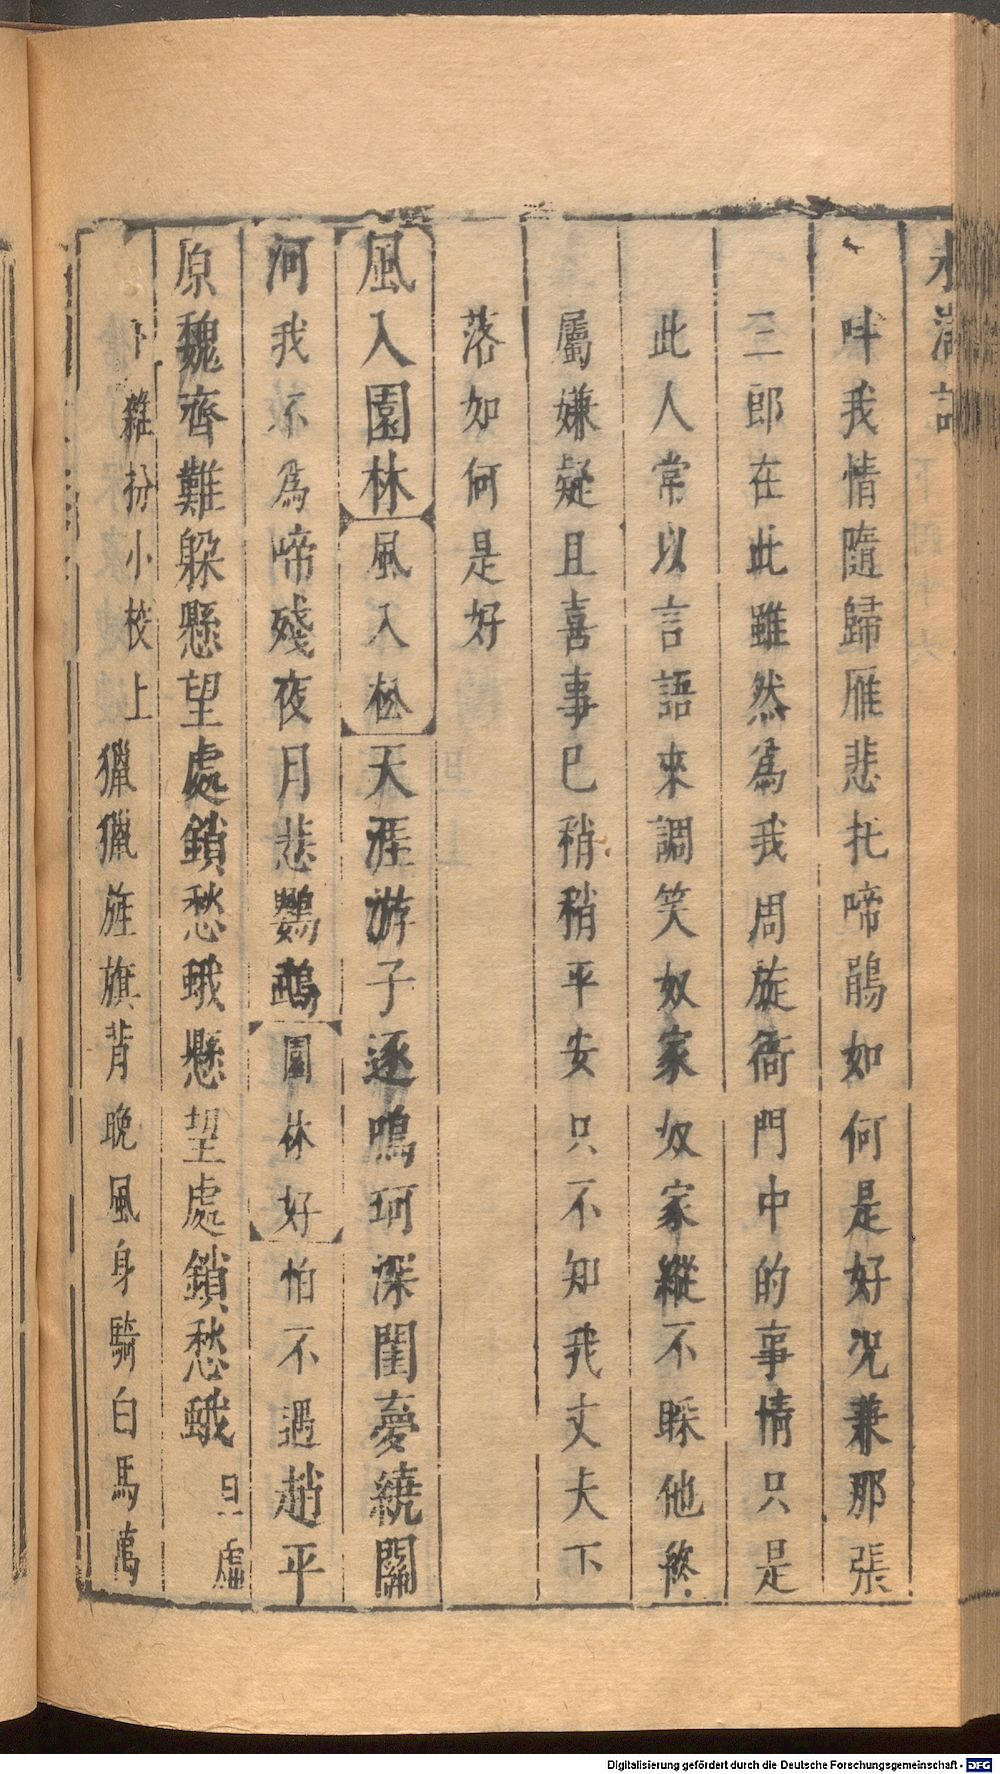 水滸記
畔我情隨歸雁悲托啼鵑如何是好況兼那張
三郎在此雖然為我周旋衙門中的事情只是
此人常以言語來調笑奴家奴家縱不睬他終
屬嫌疑且喜事已稍稍平安只不知我丈夫下
落如何是好
風入園林風入松天涯游子逐鳴珂深閨憂繞關
河我不為啼殘夜月悲鸚鵡園林好怕不遇趙平
原魏齊難躲懸望處鎖愁蛾懸望處鎖愁蛾旦虛
下雜扮小校上獵獵旌旗背晚風身騎白馬萬
Digitalisierung gefördert durch die Deutsche Forschungsgemeinschaft - DFG